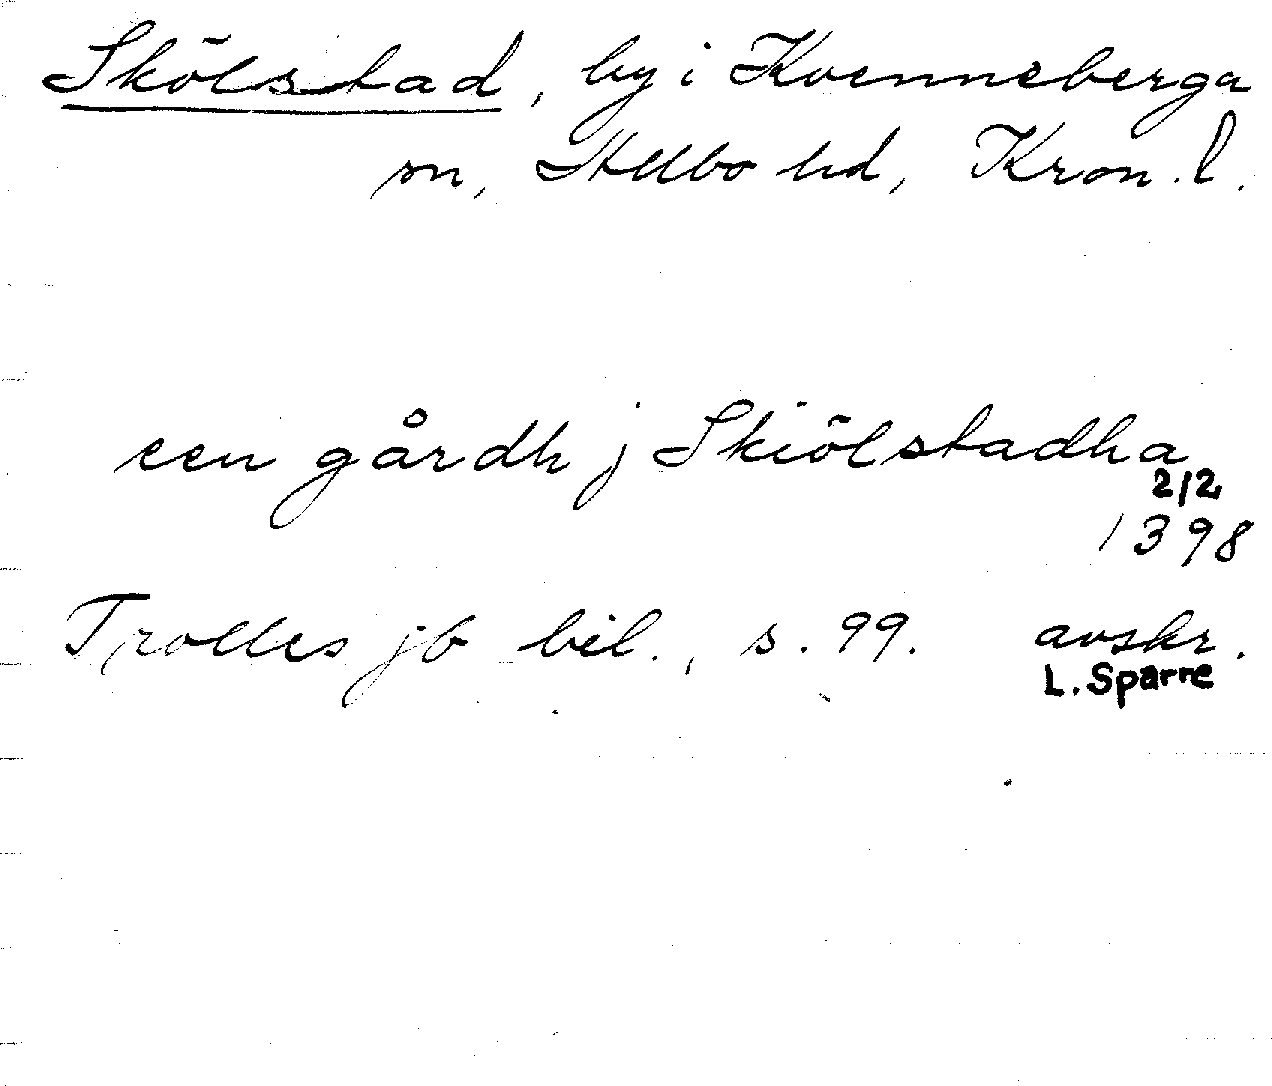 Skölstad, by i Kvenneberga
sn, Allbo hd, Kron. l.
een gårdh j Skiölstadha
2/2
1398
Trolles jb bil., s. 99. avskr.
L. Sparre